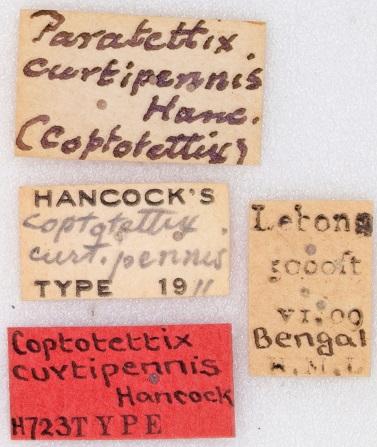 Paratettix.
curtipennis
Hanc.
(Coptotettix)
HANCOCK'S
coptotettix.
curt.pennis
TYPE 1911
Lebong
5000ft
VI.09
Bengal
Coptotettix
curtipennis
Hancock
H723TYPE